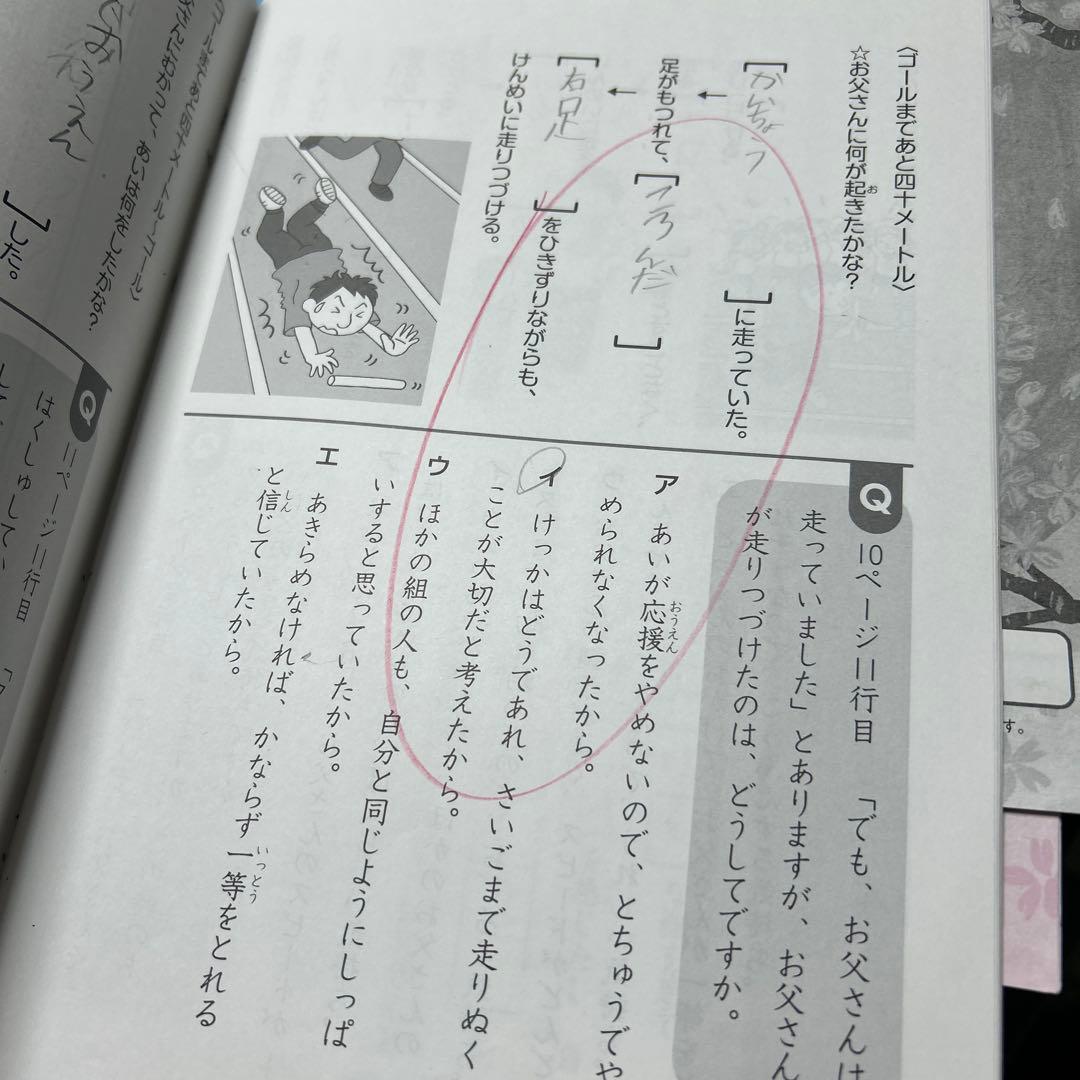 〈ゴールまであと四十メートル〉
☆お父さんに何が起きたかな？
お
［かいちょう　］に走っていた。
↓
足がもつれて、［ころんだ　］
↓
［右足　］をひきずりながらも、
けんめいに走りつづける。
Q 10ページ11行目 「でも、お父さんは
走っていました」とありますが、お父さん
が走りつづけたのは、どうしてですか。
ア あいが応援をやめないので、とちゅうでや
おうえん
められなくなったから。
イ けっかはどうであれ、さいごまで走りぬく
ことが大切だと考えたから。
ウ ほかの組の人も、自分と同じようにしっぱ
いすると思っていたから。
エ あきらめなければ、かならず一等をとれる
いっとう
と信じていたから。
しん
す。
〈ゴールまであと四十メートル〜ゴール〉
あいは何をしたかな？
おうえん
］した。
Q 11ページ11行目
はくしゅしてい